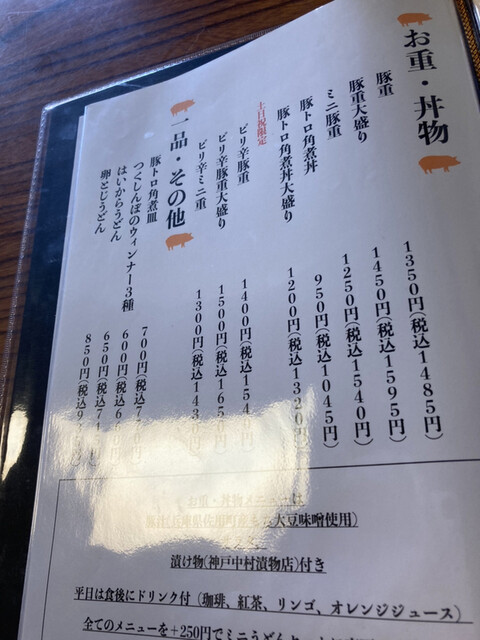 お重・丼物
豚重 1350円(税込1485円)
豚重大盛り 1450円(税込1595円)
ミニ豚重 1250円(税込1540円)
豚トロ角煮丼 950円(税込1045円)
豚トロ角煮丼大盛り 1200円(税込1320円)
土日祝限定
ピリ辛豚重 1400円(税込1540円)
ピリ辛豚重大盛り 1500円(税込1650円)
ピリ辛ミニ重 1300円(税込1430円)
一品・その他
豚トロ角煮皿 700円(税込770円)
つくしんぼのウィンナー3種 600円(税込660円)
はいからうどん 650円(税込715円)
卵とじうどん 850円(税込935円)
お重・丼物メニューは
豚汁(兵庫県佐用町産もち大豆味噌使用)
漬け物(神戸中村漬物店)付き
平日は食後にドリンク付(珈琲、紅茶、リンゴ、オレンジジュース)
全てのメニューを+250円でミニうどん